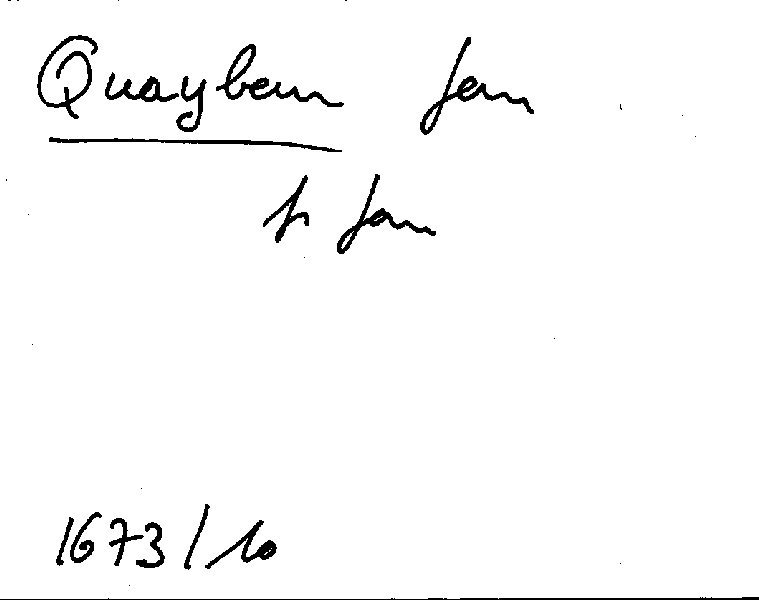 Quaybeur Jan
fs Jan
1673/10